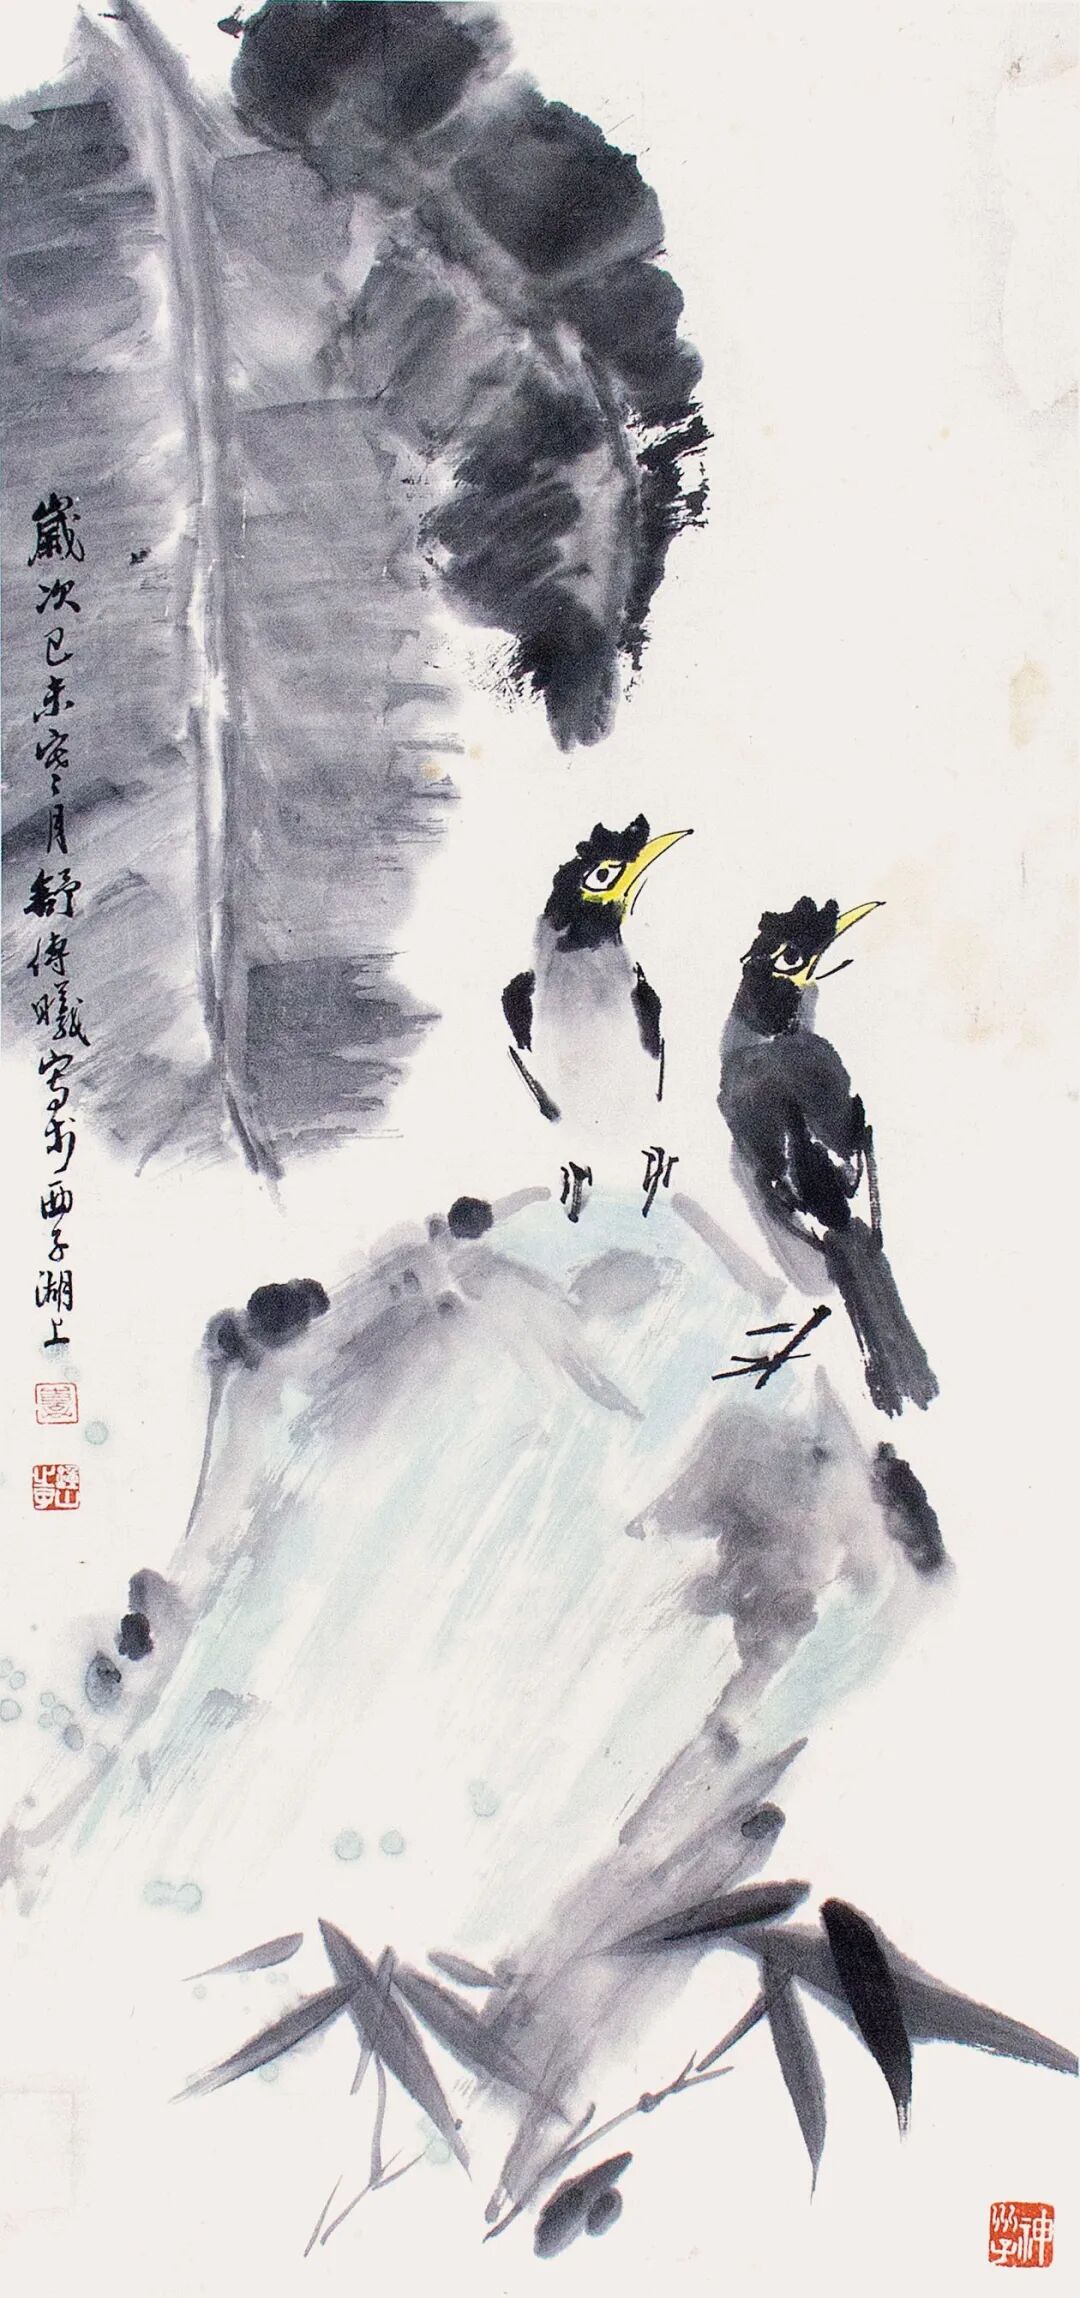 歲次己未寒月舒傳曦寫於西子湖上